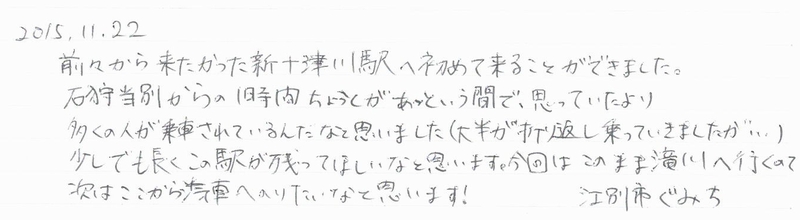 2015.11.22
前々から来たかった新十津川駅へ初めて来ることができました。
石狩当別からの1時間ちょうしがあっという間で、思っていたより
多くの人が乗車されているんだなと思いました(大半が折り返し乗っていきましたが…)
少しでも長くこの駅が残ってほしいなと思います。今回はこのまま滝川へ行くので
次はここから汽車へのりたいなと思います!
江別市ぐみち